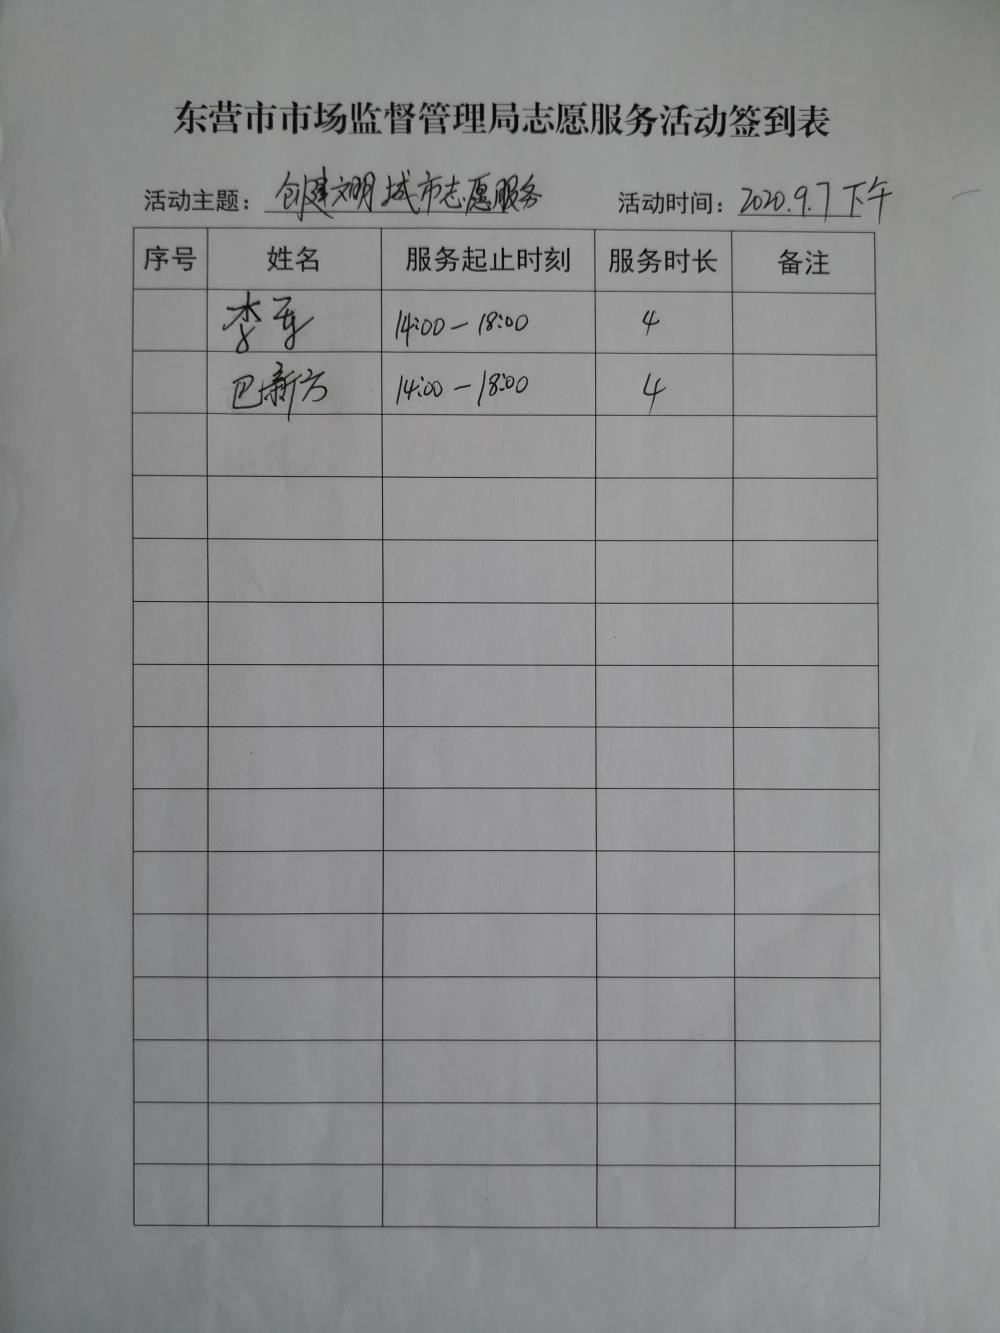 东营市市场监督管理局志愿服务活动签到表
活动主题：创建文明城市志愿服务 活动时间：2020.9.7下午
序号 姓名 服务起止时刻 服务时长 备注
李 14:00—18:00 4
巴新方 14:00—18:00 4